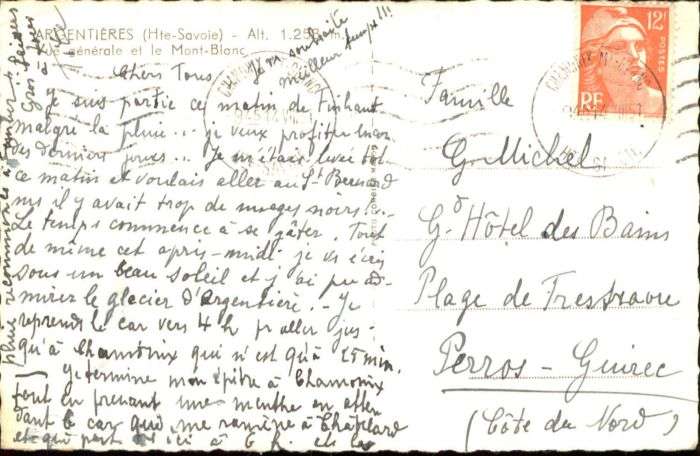 ARGENTIÈRES (Hte-Savoie) - Alt. 1.25
Vue générale et le Mont-Blanc
Je vs souhaite
meilleur temps !!!
Chers Tous,
Je suis partie ce matin de Finhaut
malgré la pluie... je veux profiter
des derniers jours... Je m'étais levée tôt
ce matin et voulais aller au St Bernard
ms il y avait trop de nuages noirs !..
Le temps commence à se gâter. Tout
de même cet après-midi je vs écris
sous un beau soleil et j'ai pu ad-
mirer le glacier d'Argentière. - Je
reprends le car vers 4 h pr aller jus-
qu'à Chamonix qui n'est qu'à 25 min.
Je termine mon épître à Chamonix
tout en prenant une menthe en atten
dant le car qui me ramène à Châtelard
et qui part ici à 6 h. et la
pluie recommence à tomber
Gros baisers
à
12F
POSTES
RF
Famille
G. Michel
Gd Hôtel des Bains
Plage de Trestraou
Perros-Guirec
(Côte du Nord)